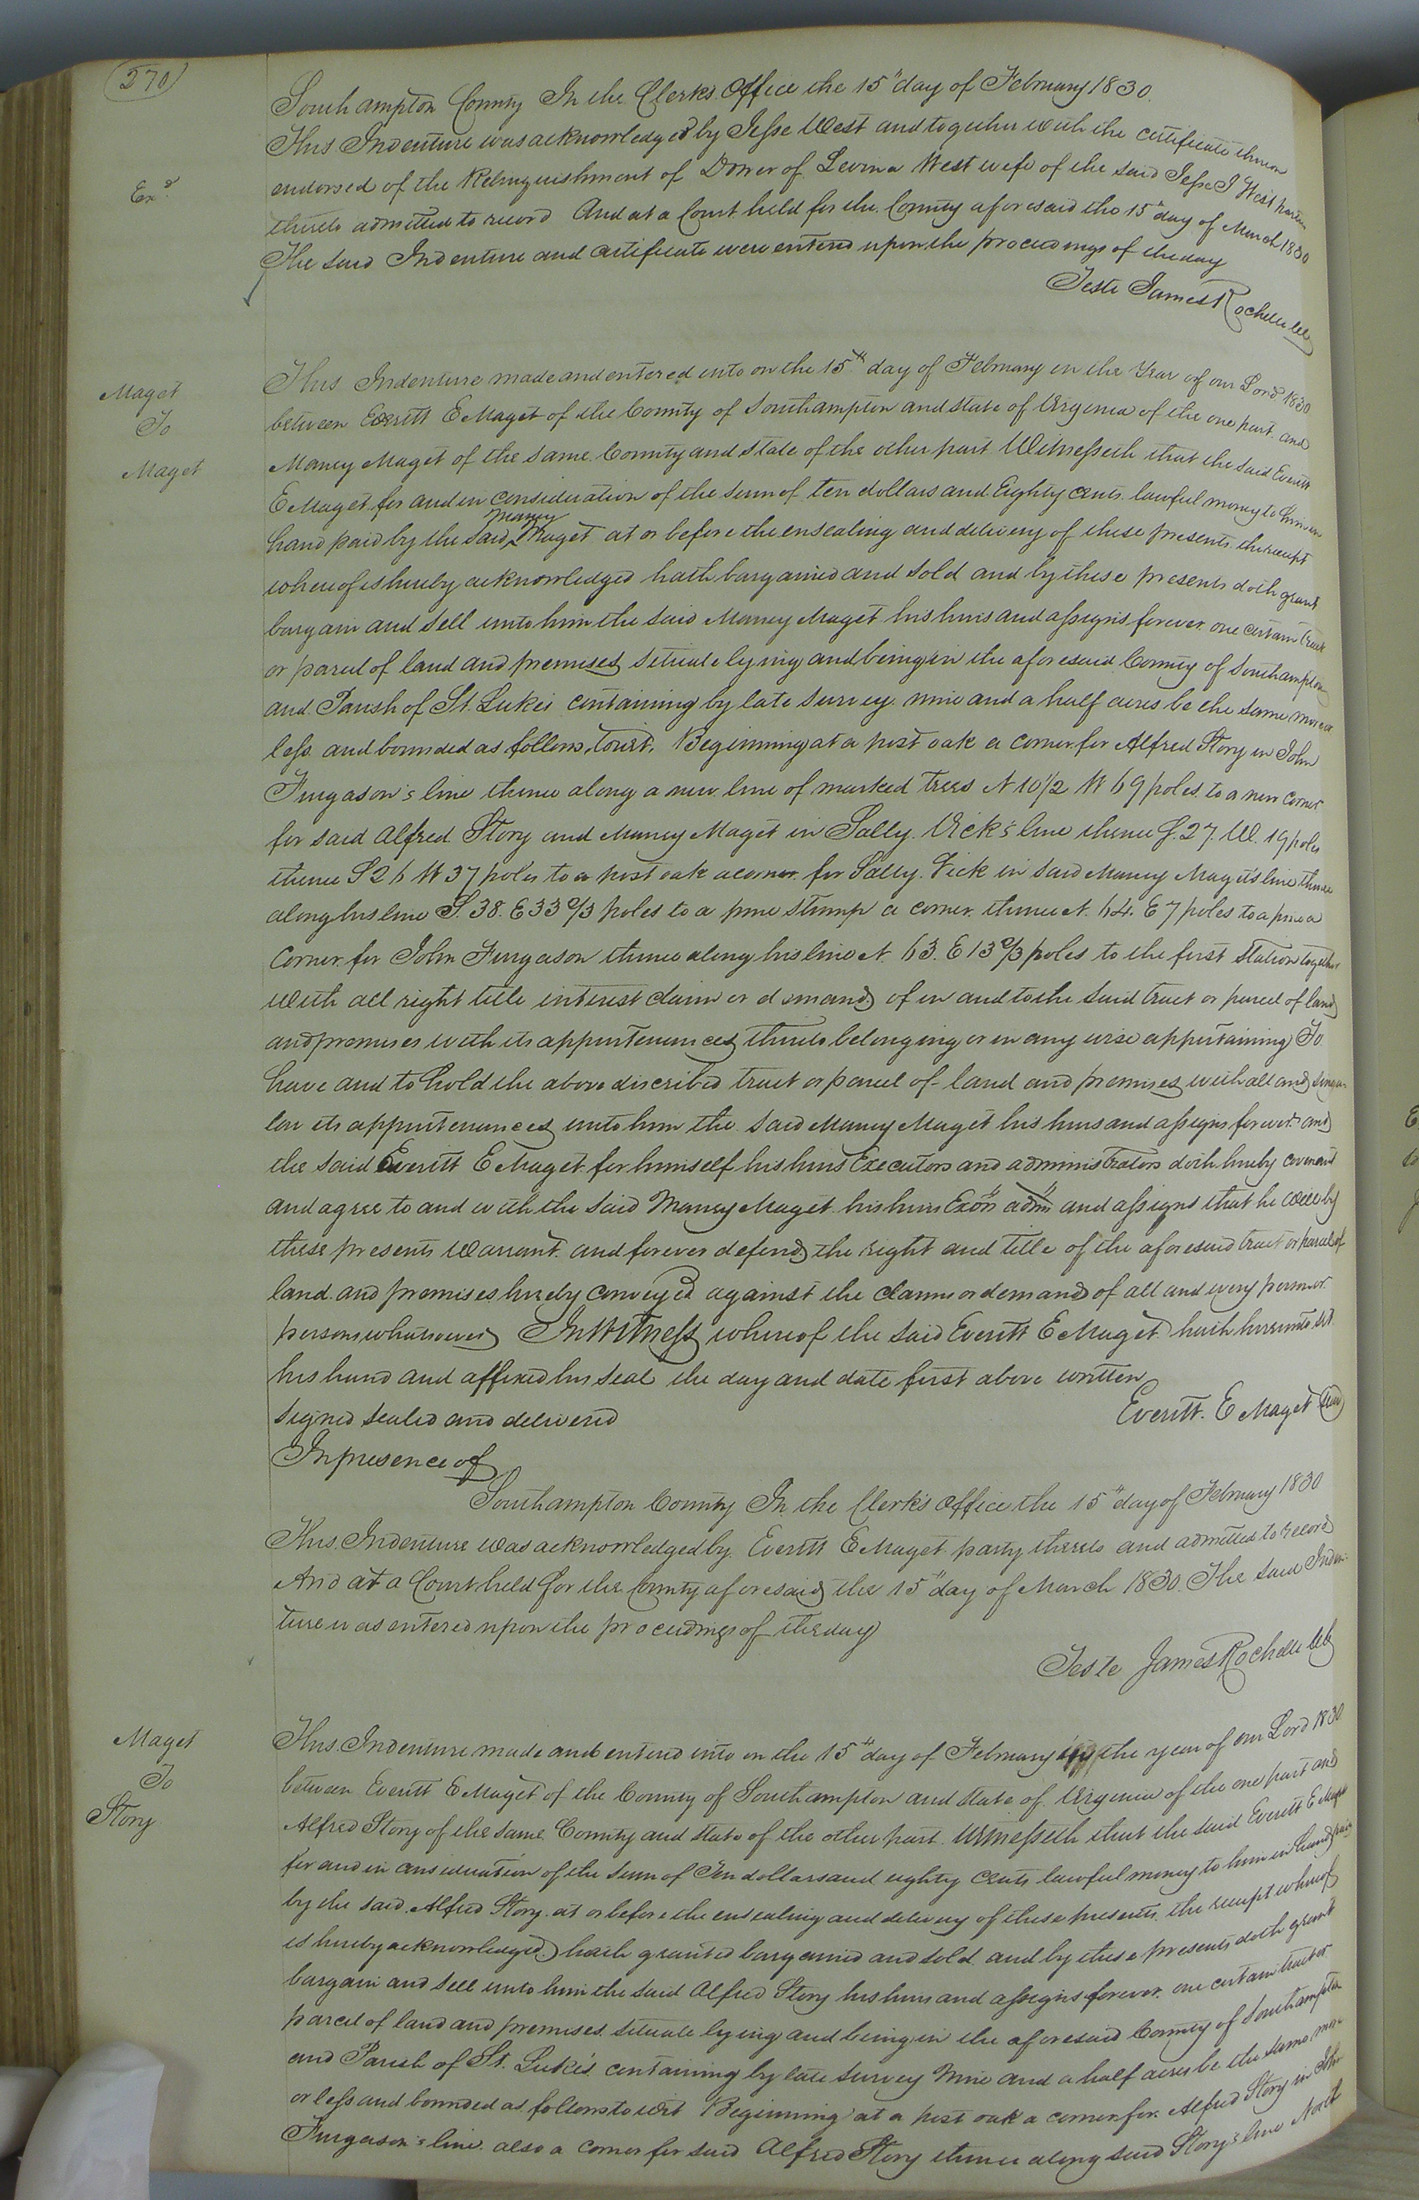 270
Southampton County In the Clerks Office the 15" day of February 1830.
This Indenture was acknowledged by Jesse West and together with the certificate thereon
Exd
endorsed of the Relinquishment of Dower of Levina West wife of the said Jesse J West
thereto admitted to record And at a Court held for the County aforesaid the 15" day of March 1830
The said Indenture and certificate were entered upon the proceedings of the day
Teste James Rochelle Clk
Maget
To
Maget
This Indenture made and entered into on the 15th day of February in the Year of our Lord 1830
between Everitt E Maget of the County of Southampton and State of Virginia of the one part and
Maney Maget of the same County and State of the other part Witnesseth that the said Everitt
E Maget for and in consideration of the sum of ten dollars and Eighty cents lawful money to him in
hand paid by the said Maney Maget at or before the ensealing and delivery of these presents the receipt
whereof is hereby acknowledged hath bargained and sold and by these presents doth grant
bargain and sell unto him the said Maney Maget his heirs and assigns forever one certain tract
or parcel of land and premises situate lying and being in the aforesaid County of Southampton
and Parish of St. Luke's containing by late survey nine and a half acres be the same more or
less and bounded as follows, towit, Beginning at a post oak a corner for Alfred Story in John
Furgason's line thence along a new line of marked trees N 10 1/2 W 69 poles to a new corner
for said Alfred Story and Maney Maget in Sally Vick's line thence S. 27. W. 19 poles
thence S 26 W 37 poles to a post oak a corner for Sally Vick in said Maney Maget's line thence
along his line S. 38. E 33 2/3 poles to a pine stump a corner thence N. 64. E 7 poles to a pine a
Corner for John Furgason thence along his line N 63. E 13 2/3 poles to the first station together
with all right title interest claim or demand of in and to the said tract or parcel of land
and premises with its appurtenances thereto belonging or in any wise appertaining To
have and to hold the above discribed tract or parcel of land and premises with all and singu
lar its appurtenances unto him the said Maney Maget his heirs and assigns forever and
the said Everitt E Maget for himself his heirs Executors and administrators doth hereby covenant
and agree to and with the said Maney Maget his heirs Exors admrs and assigns that he will by
these presents Warrant and forever defend the right and title of the aforesaid tract or parcel of
land and premises hereby conveyed against the claims or demands of all and every person or
persons whatsoever In Witness whereof the said Everitt E Maget hath hereunto set
his hand and affixed his seal the day and date first above written
Signed sealed and delivered
Everitt. E Maget Seal
In presence of
Southampton County In the Clerk's office the 15" day of February 1830
This Indenture was acknowledged by Everitt E Maget party thereto and admitted to record
And at a Court held for the County aforesaid the 15" day of March 1830. The said Inden
ture was entered upon the proceedings of the day
Teste James Rochelle Clk
Maget
To
Story
This Indenture made and entered into on the 15th day of February in the year of our Lord 1830
between Everitt E Maget of the County of Southampton and State of Virginia of the one part and
Alfred Story of the same County and State of the other part Witnesseth that the said Everitt E Maget
for and in consideration of the sum of Ten dollars and eighty cents lawful money to him in hand paid
by the said Alfred Story at or before the ensealing and delivery of these presents the receipt whereof
is hereby acknowledged hath granted bargained and sold and by these presents doth grant
bargain and sell unto him the said Alfred Story his heirs and assigns forever one certain tract or
parcel of land and premises situate lying and being in the aforesaid County of Southampton
and Parish of St. Luke's containing by late survey Nine and a half acres be the same more
or less and bounded as follows towit Beginning at a post oak a corner for Alfred Story in John
Furgason's line also a corner for said Alfred Story thence along said Story's line North